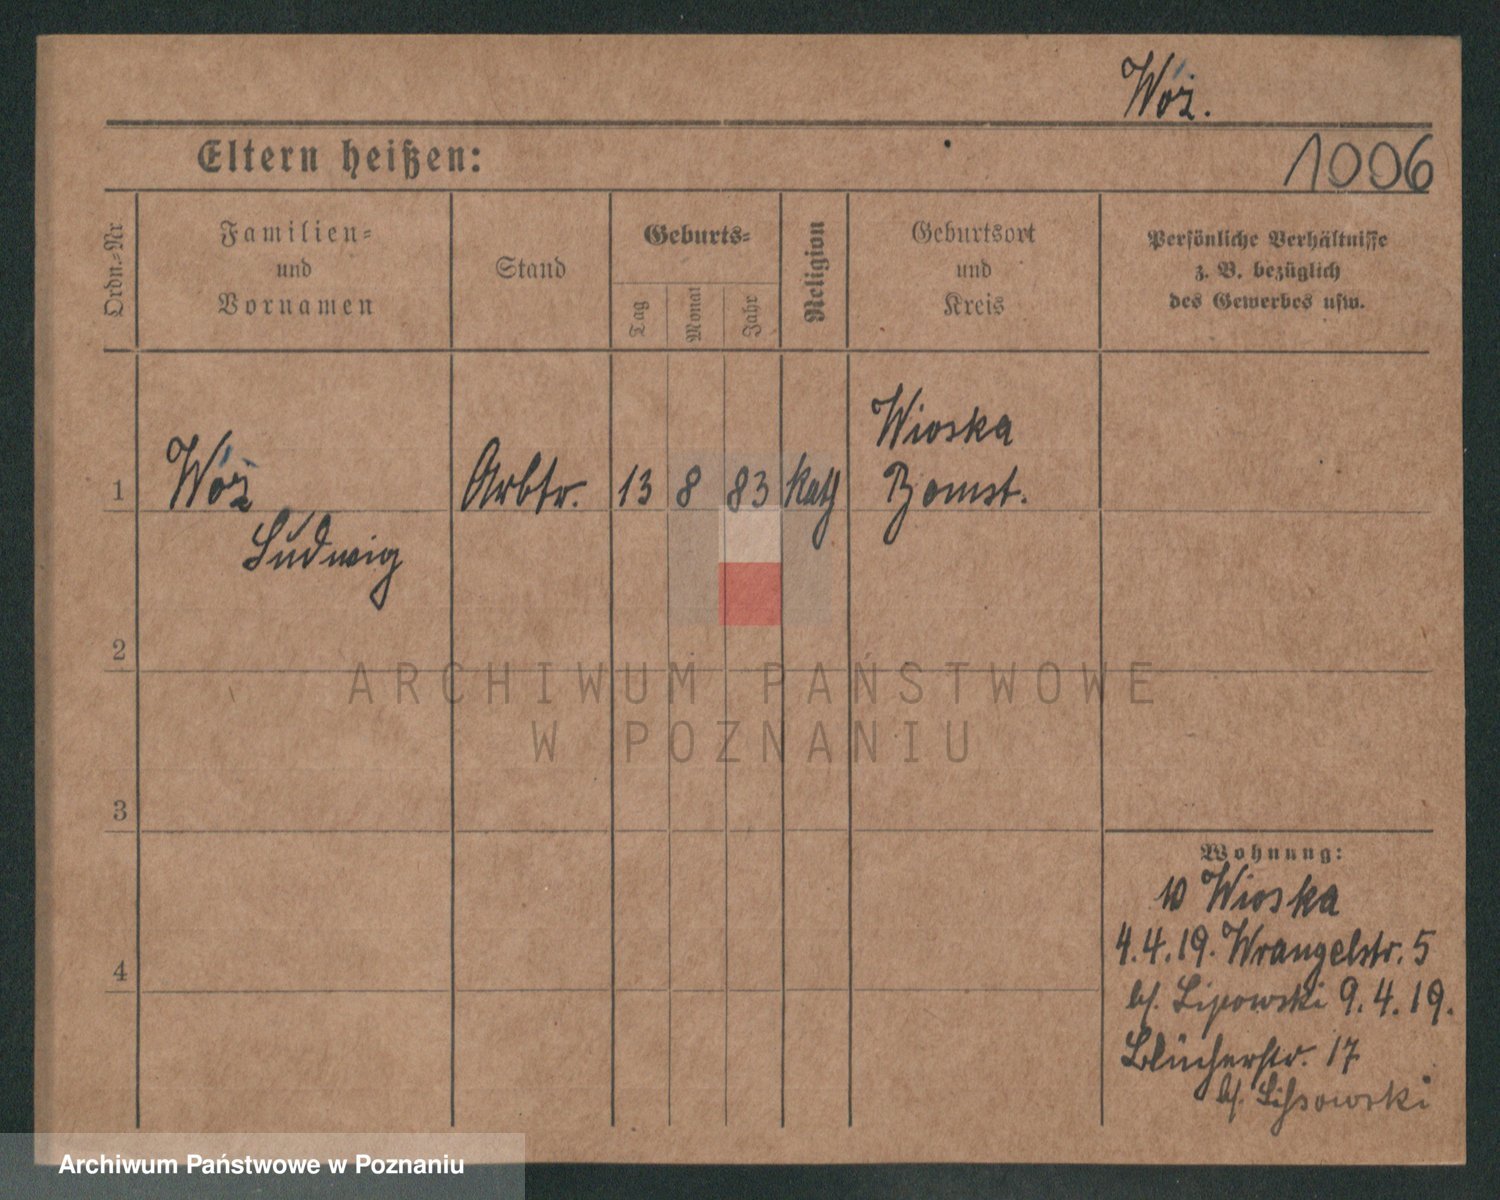 Wóz.
Eltern heißen:
1006
Ordn.-Nr
Familien-
und
Vornamen
Stand
Geburts-
Tag
Monat
Jahr
Religion
Geburtsort
und
Kreis
Persönliche Verhältnisse
z. B. bezüglich
des Gewerbes usw.
1
Wóz
Ludwig
Arbtr.
13
8
83
kath
Wioska
Bomst.
2
3
4
ARCHIWUM PAŃSTWOWE
W POZNANIU
Wohnung:
Wioska
4.4.19. Wrangelstr. 5
bf. Lipowski 9.4.19.
Blücherstr. 17
bf.
Archiwum Państwowe w Poznaniu